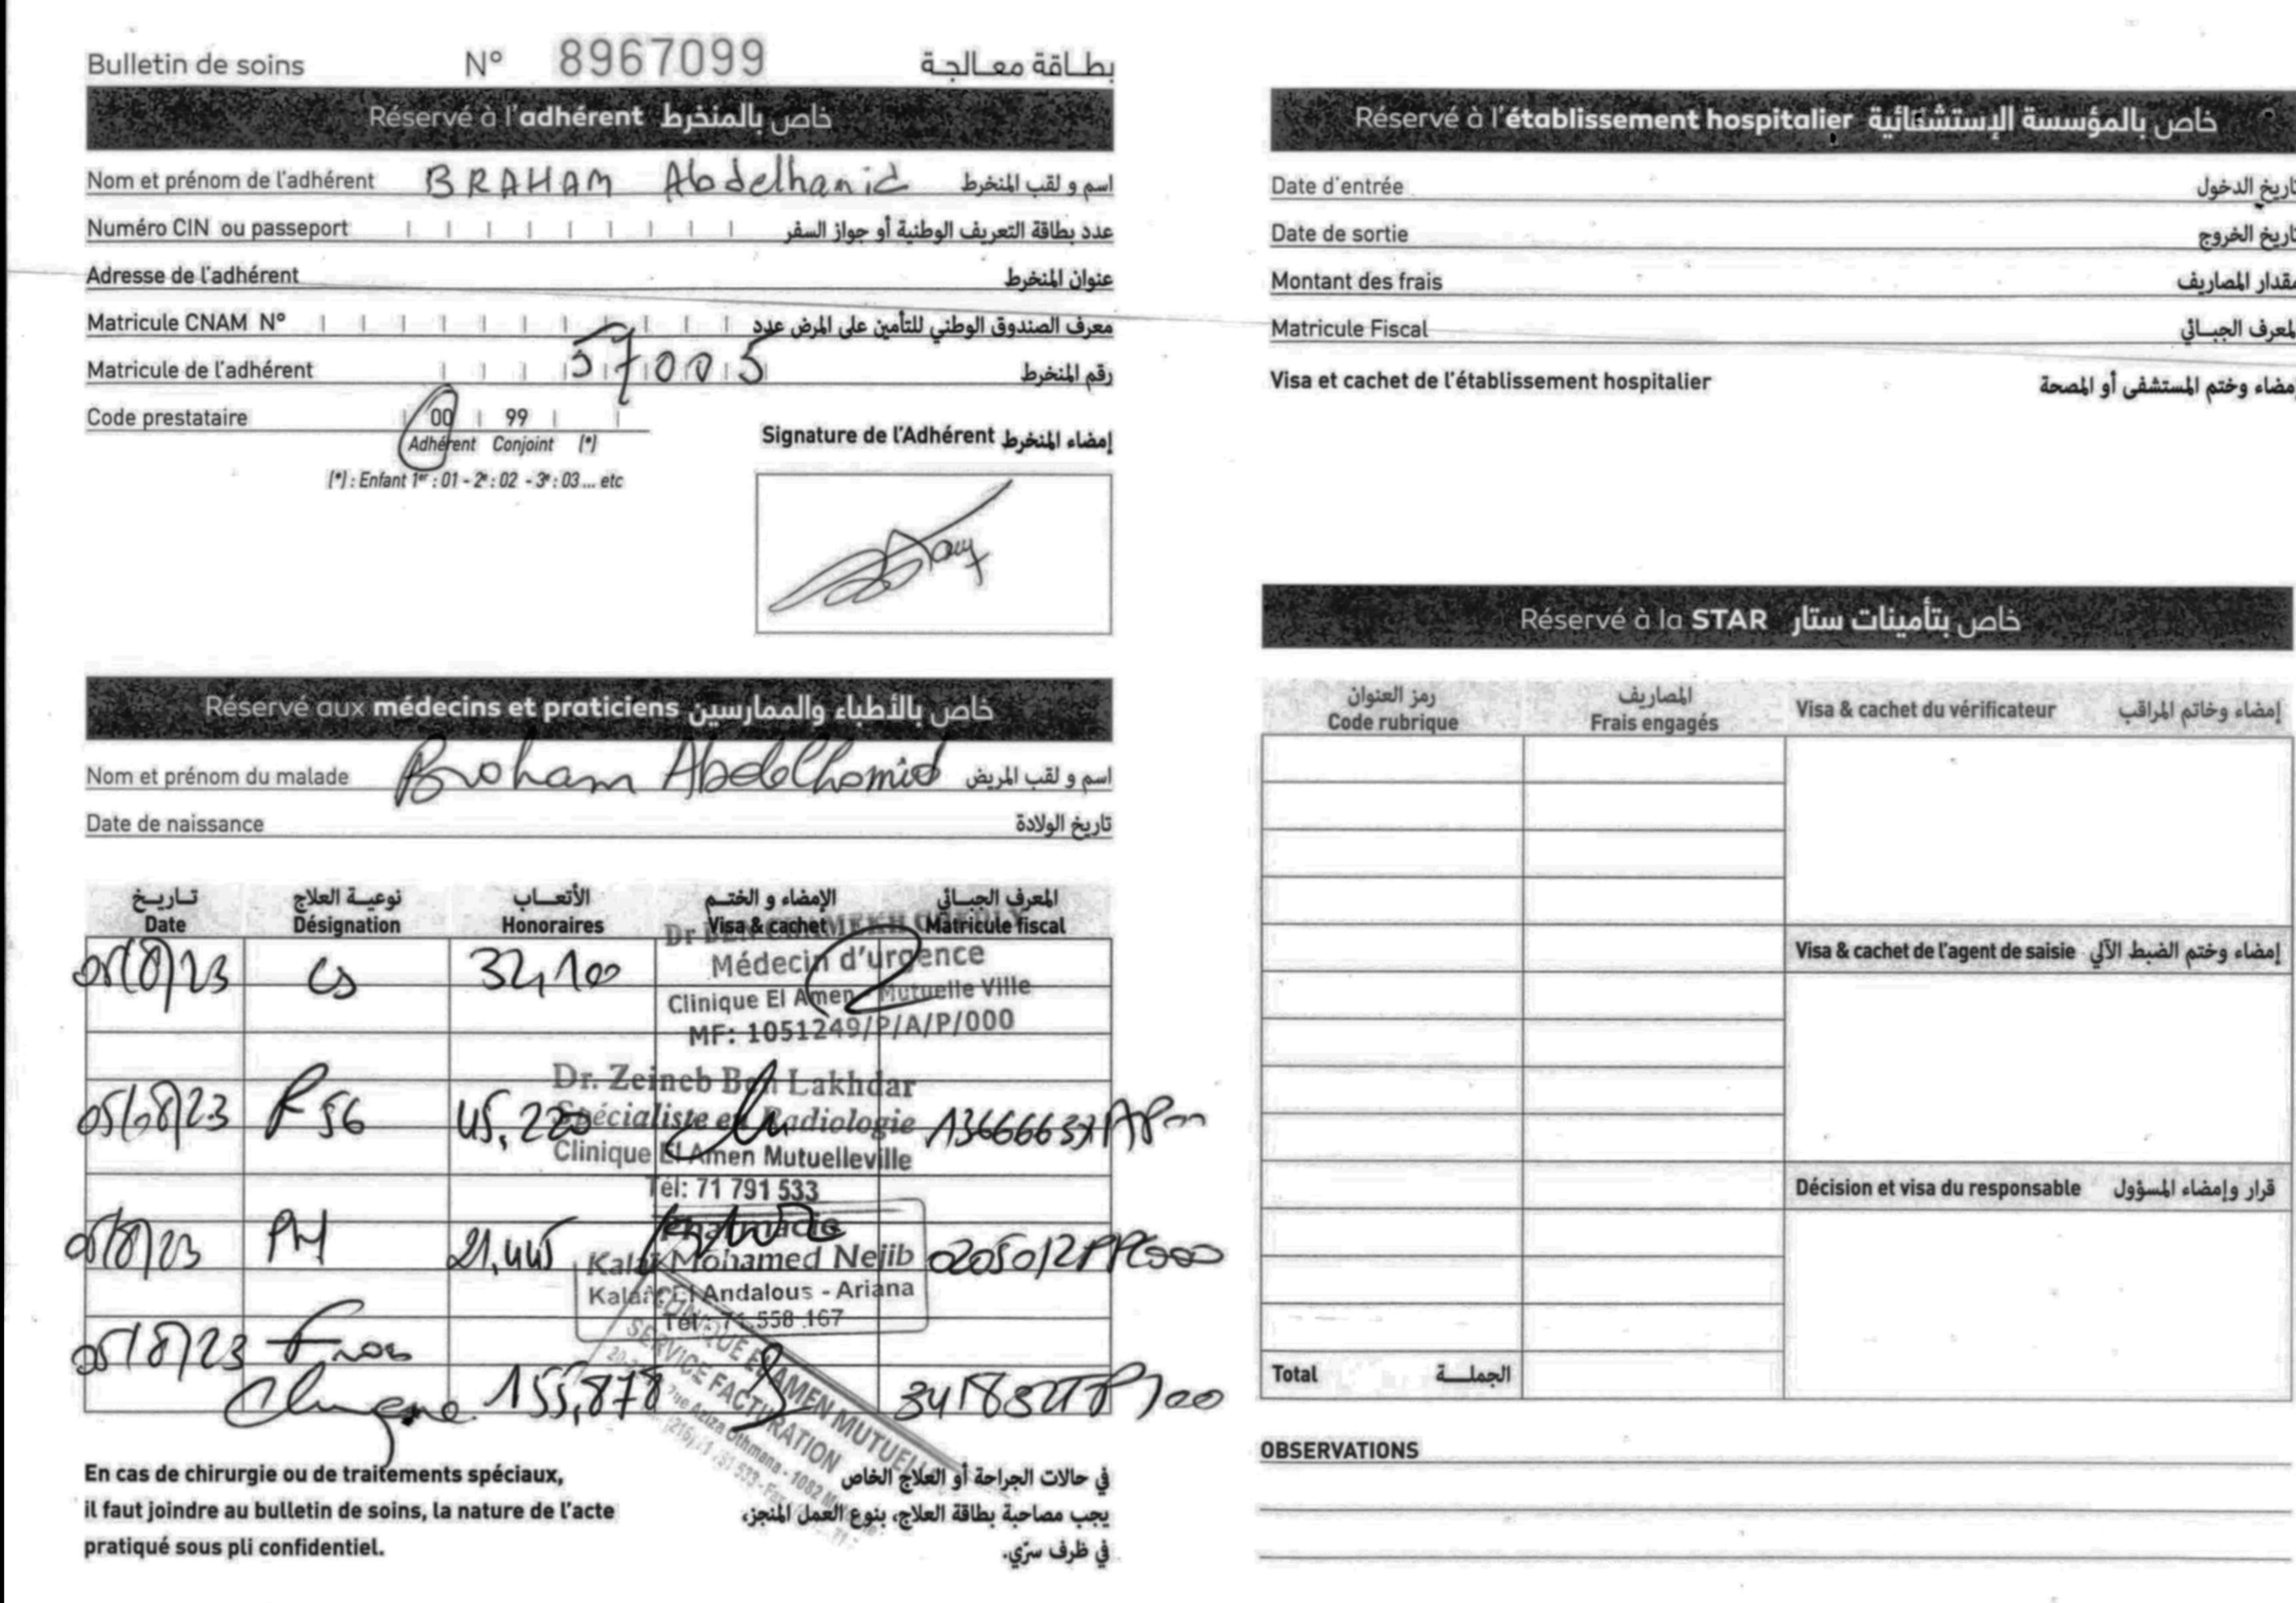 Bulletin de soins N° 8967099 بطاقة معالجة
Réservé à l'adhérent خاص بالمنخرط
Nom et prénom de l'adhérent BRAHAM Abdelhamid اسم و لقب المنخرط
Numéro CIN ou passeport عدد بطاقة التعريف الوطنية أو جواز السفر
Adresse de l'adhérent عنوان المنخرط
Matricule CNAM N° معرف الصندوق الوطني للتأمين على المرض عدد
Matricule de l'adhérent 57005 رقم المنخرط
Code prestataire 00 99
Adhérent Conjoint (*)
(*) : Enfant 1er : 01 - 2e : 02 - 3e : 03 ... etc
Signature de l'Adhérent إمضاء المنخرط
Réservé aux médecins et praticiens خاص بالأطباء والممارسين
Nom et prénom du malade Braham Abdelhamid اسم و لقب المريض
Date de naissance تاريخ الولادة
تاريخ نوعية العلاج الأتعاب الإمضاء و الختم المعرف الجبائي
Date Désignation Honoraires Visa & cachet Matricule fiscal
05/8/23 cs 32,100
Médecin d'urgence
Clinique El Amen - Mutuelle Ville
MF: 1051249/P/A/P/000
Dr. Zeineb Ben Lakhdar
05/08/23 R 56 45,220 Spécialiste en Radiologie
Clinique El Amen Mutuelleville
Tél: 71 791 533
Pharmacie
05/8/23 PH 21,445 Kalai Mohamed Nejib
Kalaat El Andalous - Ariana
Tél : 71 558 167
05/8/23 Frais
155,878
CLINIQUE EL AMEN MUTUELLE
SERVICE FACTURATION
Rue Aziza Othmana - 1082
En cas de chirurgie ou de traitements spéciaux,
il faut joindre au bulletin de soins, la nature de l'acte
pratiqué sous pli confidentiel.
في حالات الجراحة أو العلاج الخاص
يجب مصاحبة بطاقة العلاج، بنوع العمل المنجز،
في ظرف سرّي.
Réservé à l'établissement hospitalier خاص بالمؤسسة الإستشفائية
Date d'entrée تاريخ الدخول
Date de sortie تاريخ الخروج
Montant des frais مقدار المصاريف
Matricule Fiscal المعرف الجبائي
Visa et cachet de l'établissement hospitalier إمضاء وختم المستشفى أو المصحة
Réservé à la STAR خاص بتأمينات ستار
رمز العنوان المصاريف
Code rubrique Frais engagés Visa & cachet du vérificateur إمضاء وخاتم المراقب
Visa & cachet de l'agent de saisie إمضاء وختم الضبط الآلي
Décision et visa du responsable قرار وإمضاء المسؤول
Total الجملة
OBSERVATIONS